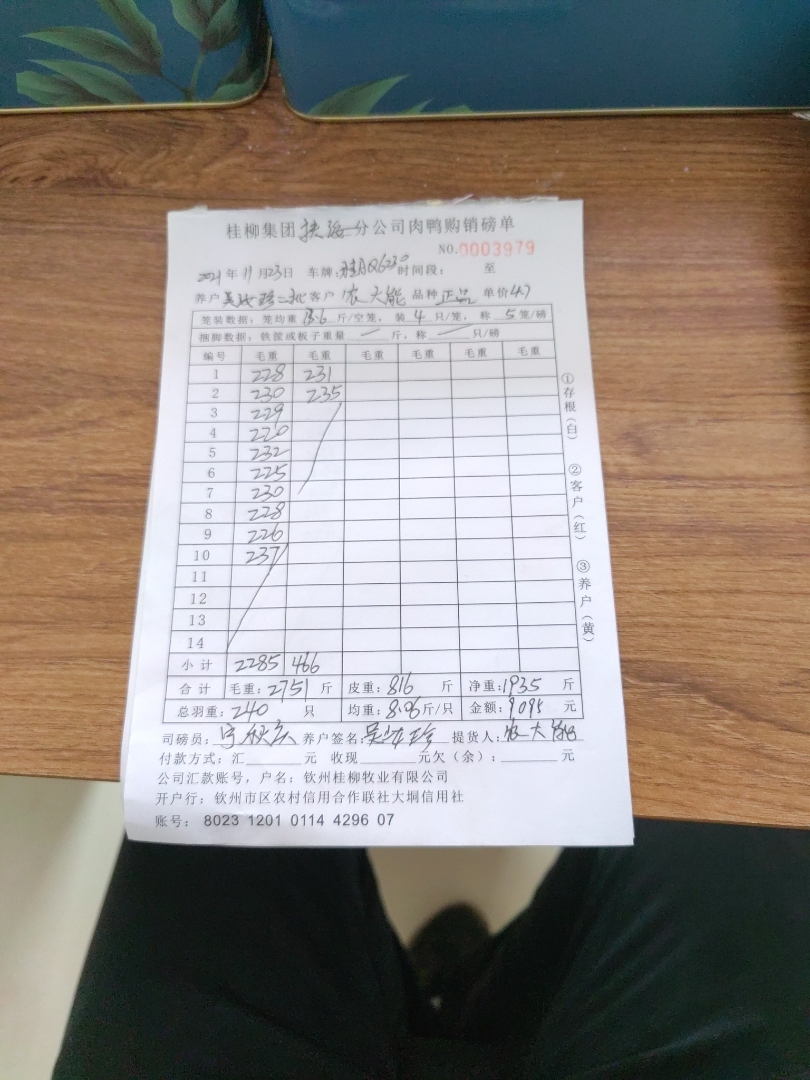 桂柳集团 分公司肉鸭购销磅单
NO.0003979
2021年11月23日 车牌:桂AQ6230 时间段: 至
养户 吴 珍二 客户 农大能 品种 正品 单价 4.7
笼装数据:笼均重 13.6 斤/空笼,装 4 只/笼,称 5 笼/磅
捆脚数据:铁筐或板子重量 — 斤,称 — 只/磅
编号 毛重 毛重 毛重 毛重 毛重 毛重
1 228 231
2 230 235
3 229
4 220
5 232
6 225
7 230
8 228
9 226
10 237
11
12
13
14
小计 2285 466
合计 毛重:2751 斤 皮重:816 斤 净重:1935 斤
总羽重:240 只 均重:8.06斤/只 金额:9095 元
司磅员: 养户签名:吴 珍 提货人:农大能
付款方式:汇 元 收现 元欠(余): 元
公司汇款账号,户名:钦州桂柳牧业有限公司
开户行:钦州市区农村信用合作联社大垌信用社
账号: 8023 1201 0114 4296 07
①存根(白) ②客户(红) ③养户(黄)